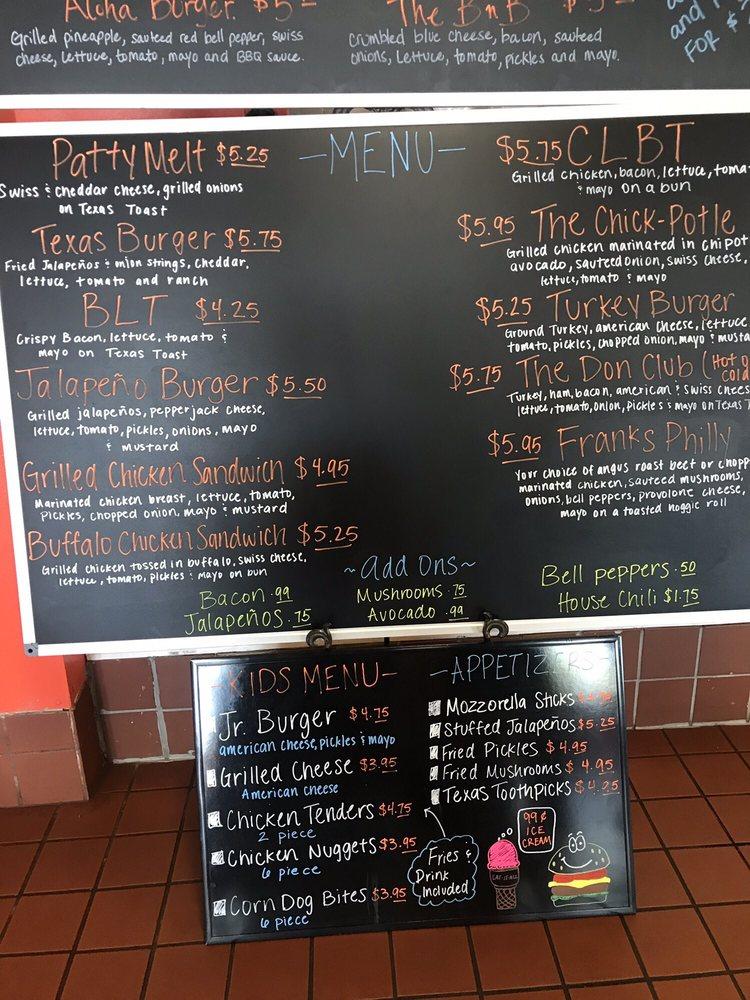 Aloha Burger $5
Grilled pineapple, sauteed red bell pepper, swiss
cheese, lettuce, tomato, mayo and BBQ sauce.
The BnB $5
crumbled blue cheese, bacon, sauteed
onions, Lettuce, tomato, pickles and mayo.
and
FOR $
-MENU-
Patty Melt $5.25
Swiss & cheddar cheese, grilled onions
on Texas Toast
Texas Burger $5.75
Fried Jalapeños & onion strings, cheddar,
lettuce, tomato and ranch
BLT $4.25
Crispy Bacon, lettuce, tomato &
mayo on Texas Toast
Jalapeño Burger $5.50
Grilled jalapeños, pepperjack cheese,
lettuce, tomato, pickles, onions, mayo
& mustard
Grilled Chicken Sandwich $4.95
Marinated chicken breast, lettuce, tomato,
pickles, chopped onion, mayo & mustard
Buffalo Chicken Sandwich $5.25
Grilled chicken tossed in buffalo, swiss cheese,
lettuce, tomato, pickles & mayo on bun
$5.75 CLBT
Grilled chicken, bacon, lettuce, toma
& mayo on a bun
$5.95 The Chick-Potle
Grilled chicken marinated in chipot
avocado, sauteed onion, swiss cheese,
lettuce, tomato & mayo
$5.25 Turkey Burger
Ground Turkey, american cheese, lettuce
tomato, pickles, chopped onion, mayo & musta
$5.75 The Don Club (Hot o
cold
Turkey, ham, bacon, american & swiss chees
lettuce, tomato, onion, pickles & mayo on Texas T
$5.95 Franks Philly
Your choice of angus roast beef or chopp
marinated chicken, sauteed mushrooms,
onions, bell peppers, provolone cheese,
mayo on a toasted hoggie roll
~Add Ons~
Bacon .99
Jalapeños .75
Mushrooms .75
Avocado .99
Bell peppers .50
House Chili $1.75
-KIDS MENU-
Jr. Burger $4.75
american cheese, pickles & mayo
Grilled Cheese $3.95
American cheese
Chicken Tenders $4.75
2 piece
Chicken Nuggets $3.95
6 piece
Corn Dog Bites $3.95
6 piece
Fries &
Drink
Included
-APPETIZERS-
Mozzorella Sticks
Stuffed Jalapeños $5.25
Fried Pickles $4.95
Fried Mushrooms $4.95
Texas Toothpicks $4.25
99¢
ICE
CREAM